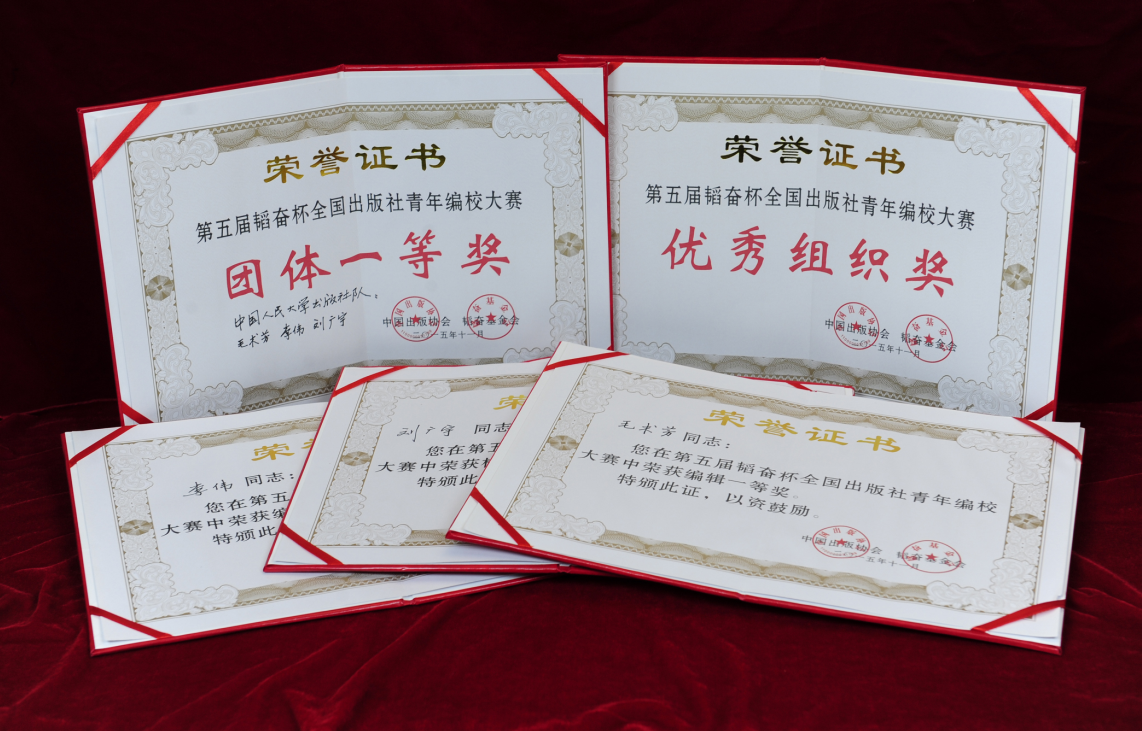 荣誉证书
第五届韬奋杯全国出版社青年编校大赛
团体一等奖
中国人民大学出版社队：
王术芳 李伟 刘广宇
中国出版协会 韬奋基金会
二〇一五年十一月
荣誉证书
第五届韬奋杯全国出版社青年编校大赛
优秀组织奖
中国出版协会 韬奋基金会
二〇一五年十一月
荣
李伟 同志：
您在第五
大赛中荣获编
特颁此
荣
刘广宇 同志
您在第五
大赛中荣获
特颁此
荣誉证书
王术芳 同志：
您在第五届韬奋杯全国出版社青年编校
大赛中荣获编辑一等奖。
特颁此证，以资鼓励。
中国出版协会 韬奋基金会
二〇一五年十一月